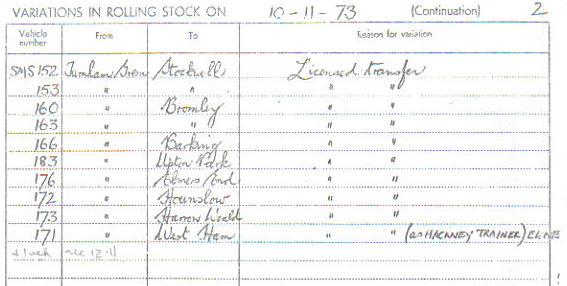 VARIATIONS IN ROLLING STOCK ON 10-11-73 (Continuation) 2
Vehicle number From To Reason for variation
SMS152 Turnham Green Stockwell Licensed transfer
153 " " " "
160 " Bromley " "
163 " " " "
166 " Barking " "
183 " Upton Park " "
176 " Elmers End " "
172 " Hounslow " "
173 " Harrow Weald " "
171 " West Ham " " (as HACKNEY TRAINER)